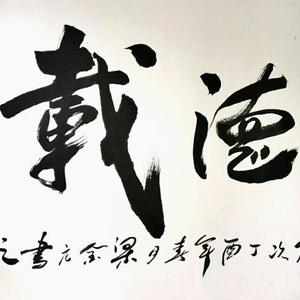 德載
次丁酉年春月梁金元書